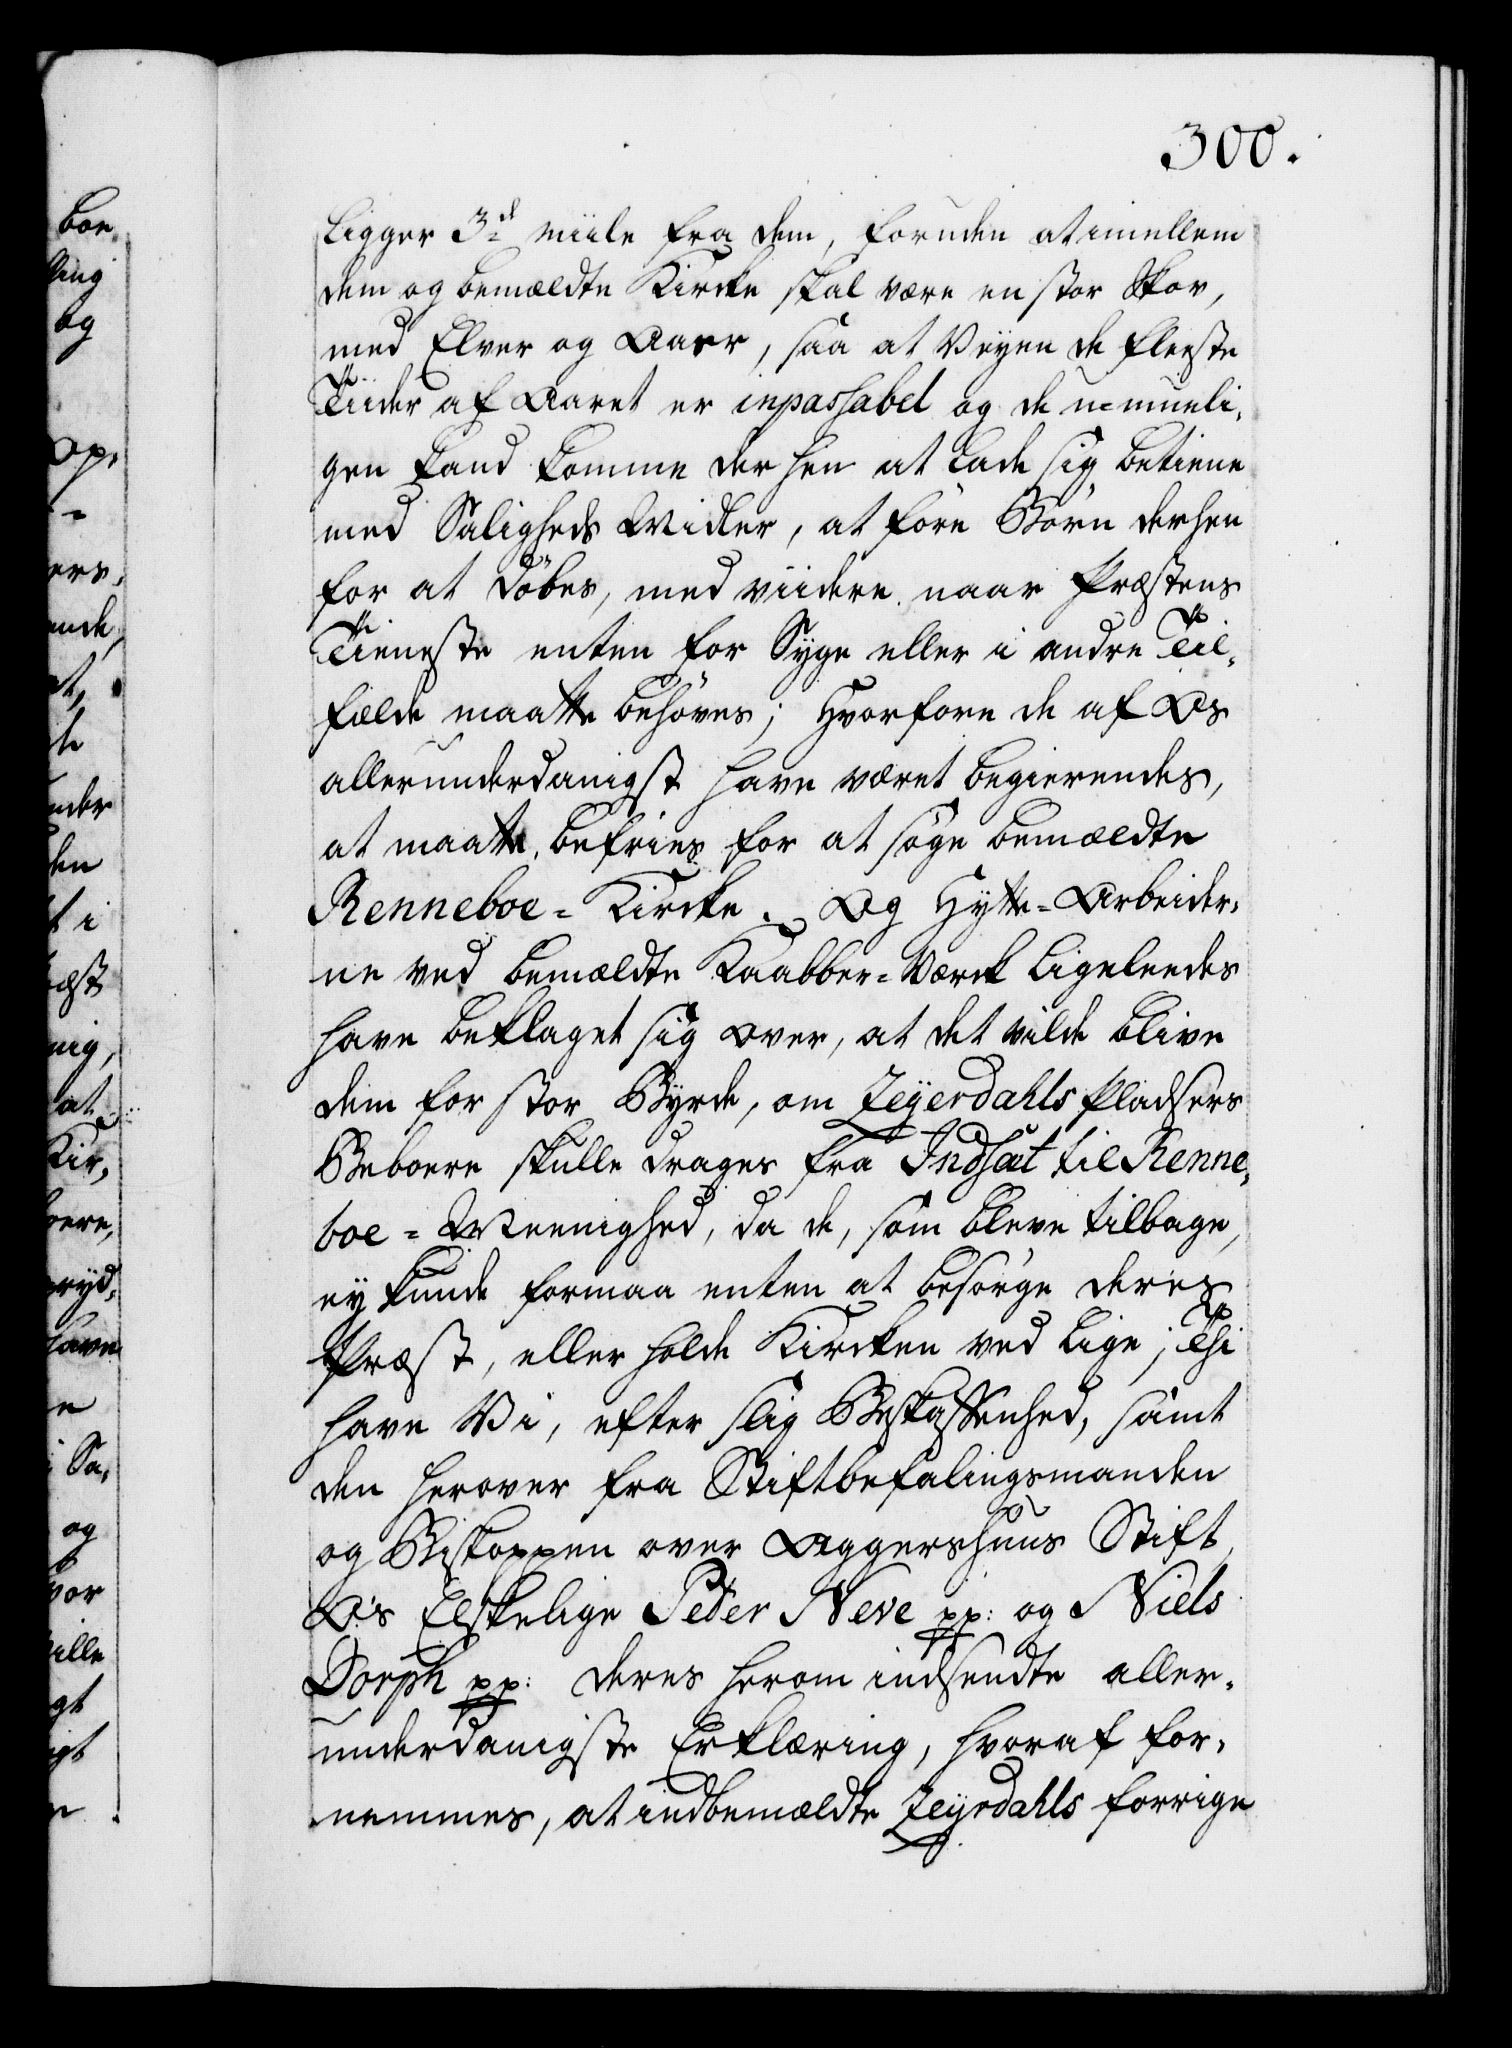 300.
ligger 3de miile fra dem, foruden at imellem
dem og bemældte Kircke skal være en stor Skov,
med Elver og Aaer, saa at Veyen de fleeste
Tiider af Aaret er inpassabel og de u-mueli-
gen kand komme der hen at lade sig betiene
med Saligheds Midler, at före Börn derhen
for at döbes, med viidere naar Præstens
Tieneste enten for Syge eller i andre Til-
fælde maatte behöves; Hvorfore de af Os
allerunderdanigst have været begierendes,
at maatte befries for at söge bemældte
Renneboe-Kircke. Og Hytte-Arbeider-
ne ved bemældte Kaabber-Værck ligeleedes
have beklaget sig over, at det vilde blive
dem for stor Byrde, om Zeyerdahls Pladsers
Beboere skulle drages fra Indsæt til Renne-
boe-Meenighed, da de, som bleve tilbage,
ey kunde formaa enten at besörge deres
Præst, eller holde Kircken ved lige; Thi
have Vi, efter slig Beskaffenhed, samt
den herover fra Stiftbefalingsmanden
og Biskoppen over Aggershuus Stift,
Os Elskelige Peder Neve pp: og Niels
Dorph pp: deres herom indsendte aller-
underdanigste Erklæring, hvoraf for-
nemmes, at indbemældte Zeyrdahls forrige
boe
ling
og
op-
ers-
ende,
et,
le
nder
den
t i
æst
nig,
at
Kir-
oere,
ryd-
have
e
i Sa-
og
vor
ville
gt
igt